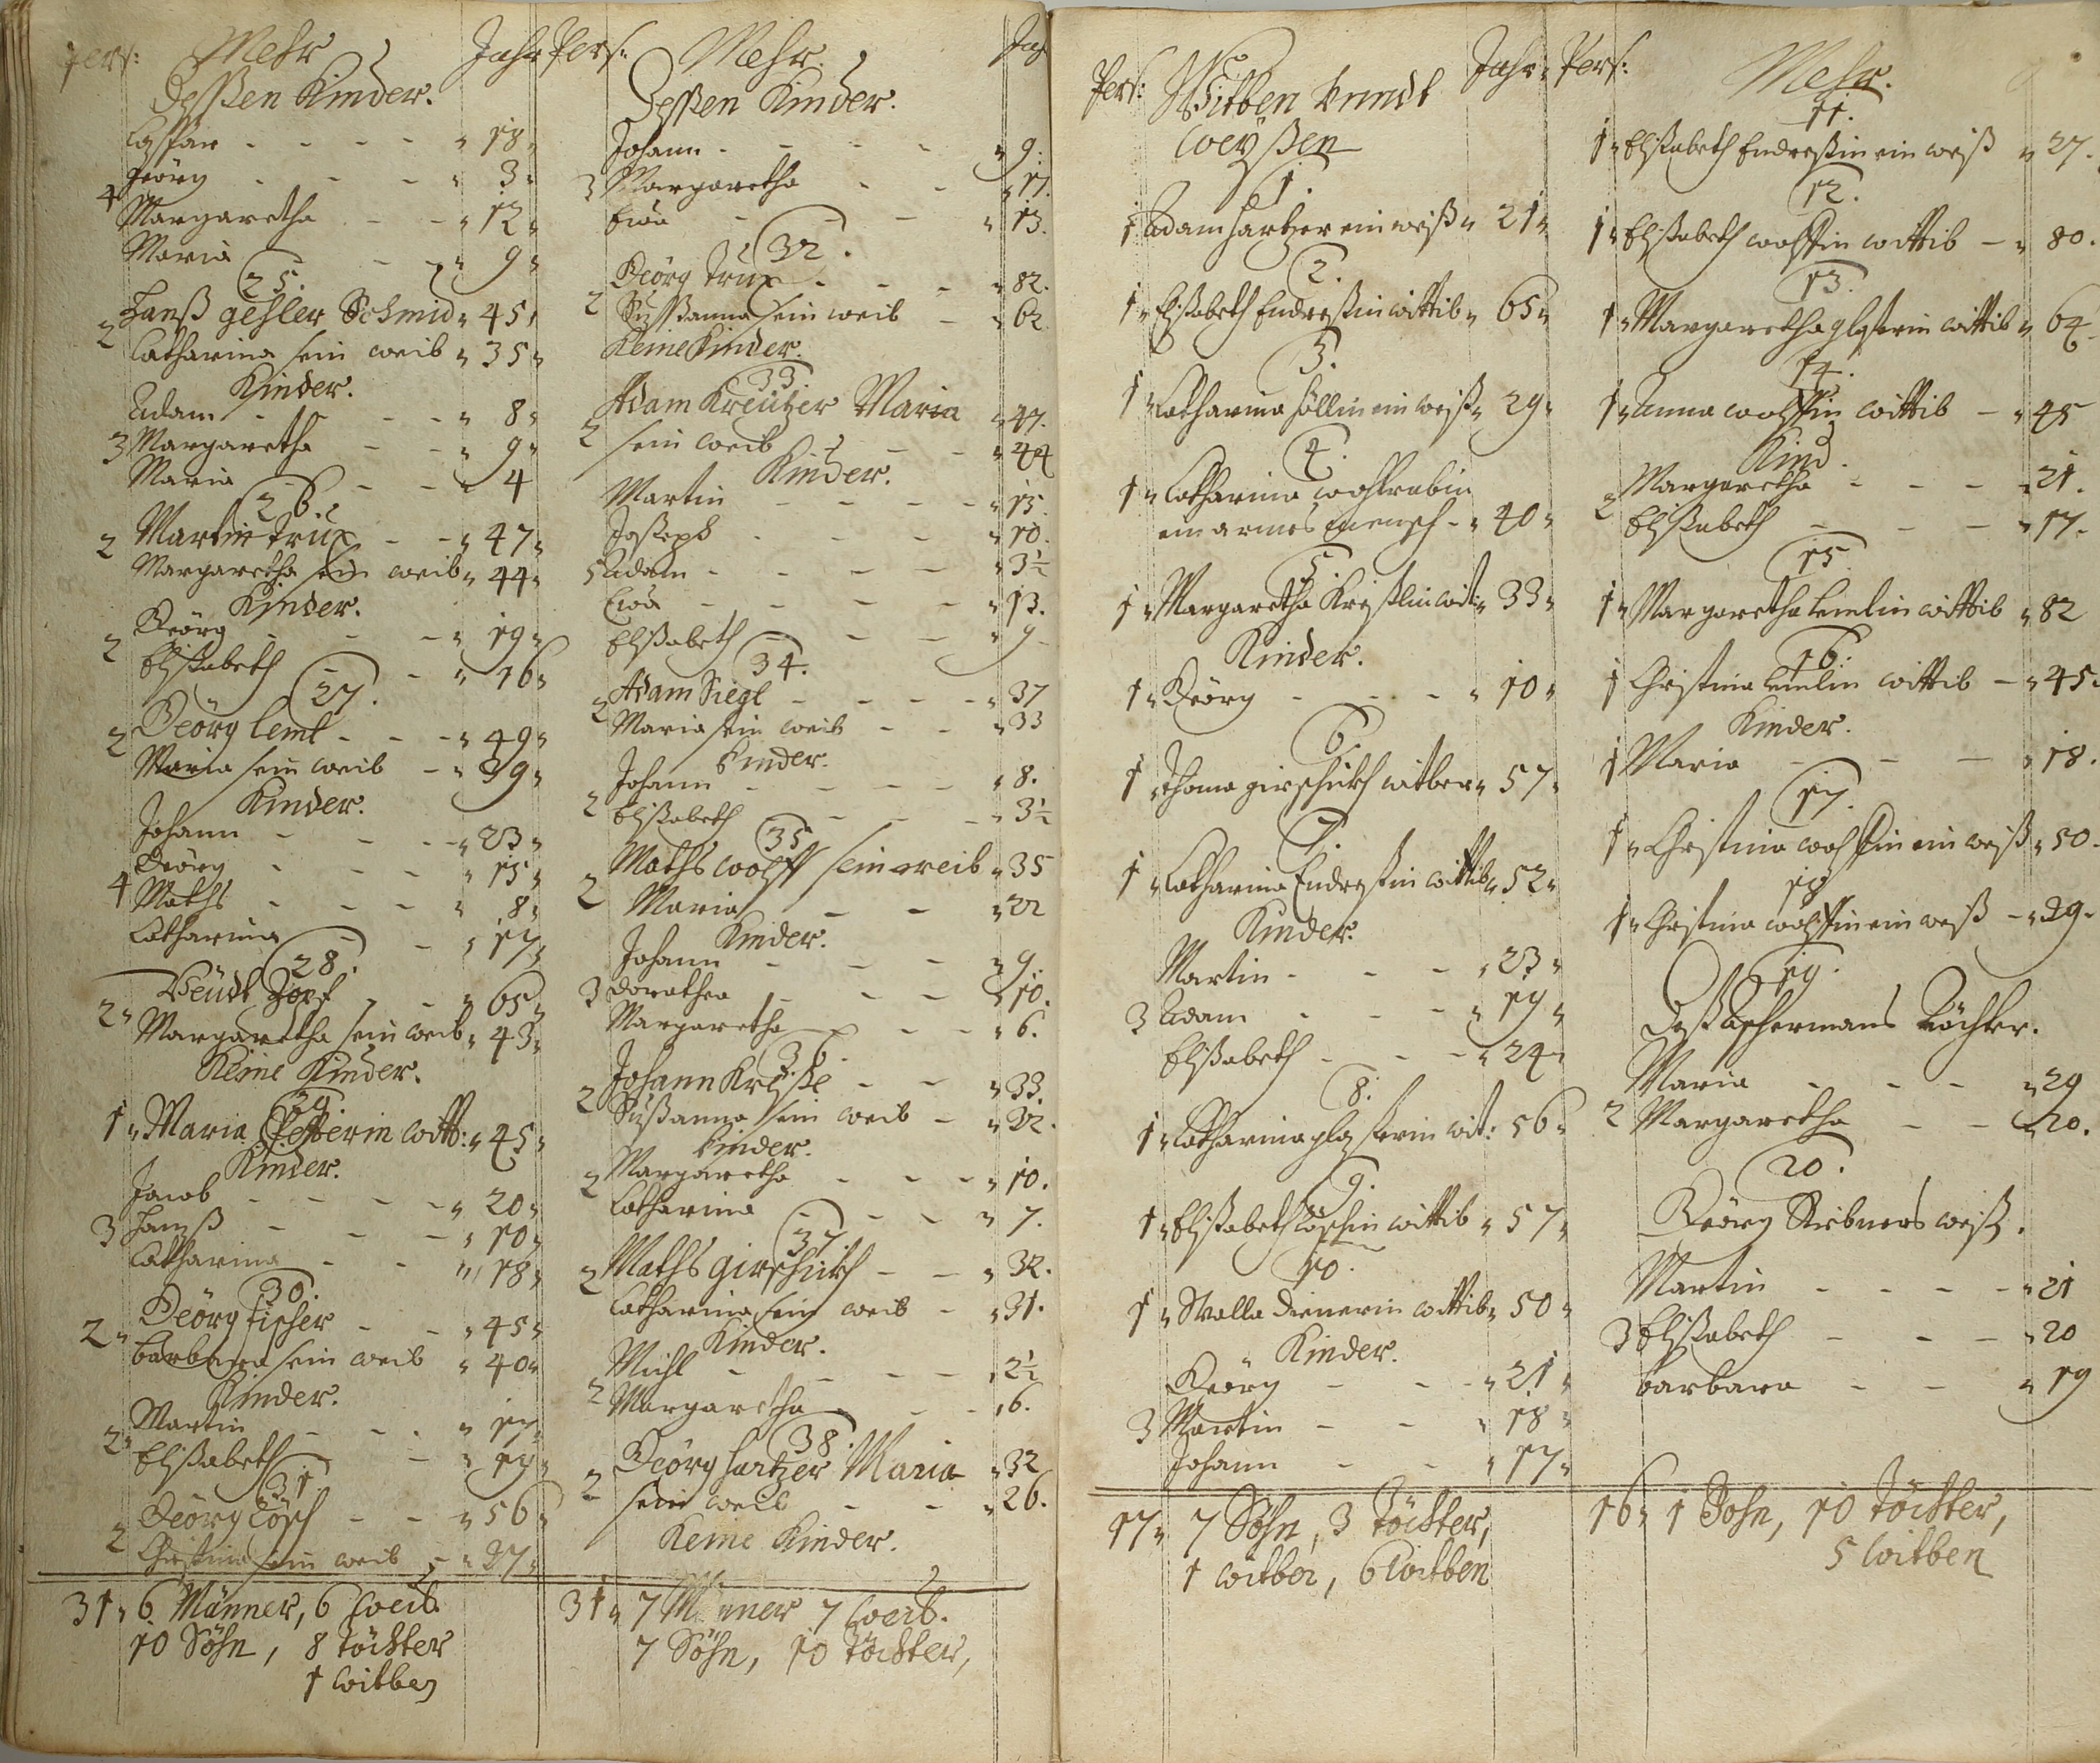 Pers: Mehr Jahr
Deßen Kinder.
Caspar - - - - 18
Geörg - - - 3
4 Margaretha - - 12
Maria - - 9
25.
Hanß gehler Schmid 45
2 Catharina sein weib 35
Kinder.
Adam - - - - 8
3 Margaretha - - 9
Maria - - - 4
26.
2 Martin trux - - 47
Margaretha sein weib 44
Kinder.
Geörg - - - 19
2 Elißabeth - - 16
27.
2 Geörg lemt - - - 49
Maria sein weib - 39
Kinder.
Johann - - - 23
Geörg - - - 15
4 Maths - - - 8
Catharina - - 17
28.
2 Veudt Zorf - - 65
Margaretha sein weib 43
Keine Kinder.
29.
1 Maria Pfefferin witt: 45
Kinder.
Jacob - - - - 20
3 Hanß - - - 10
Catharina - - 18
30.
2 Geörg fischer - - 45
Barbara sein weib 40
Kinder.
2 Martin - - - 17
Elißabeth - - 19
31.
2 Geörg Cösch - - 56
Christina sein weib - 37
31 6 Männer, 6 weib.
10 Söhn, 8 töchter
1 witben
Pers: Mehr. Jah
Deßen Kinder.
Johann - - - - 9.
3 Margaretha - - 17.
Eva - - - 13.
32.
Geörg trux - - - 82.
2 Sußanna sein weib - 62
Keine Kinder.
33.
Adam Kreützer Maria 47.
2 sein weib - - - 44
Kinder.
Martin - - - - 15.
Joßeph - - - 10.
5 Adam - - - - 3½
Eva - - - - 13.
Elißabeth - - - 9
34.
2 Adam Siegl - - - - 37
Maria sein weib - - 33
Kinder.
Johann - - - - 8.
2 Elißabeth - - - 3½
35
Maths wolff sein weib 35
2 Maria - - 22
Kinder.
Johann - - - 9.
3 Dorathea - - - 10.
Margaretha - - - 6.
36.
2 Johann Kreße - - 33.
Sußanna sein weib - 32.
Kinder.
2 Margaretha - - - 10.
Catharina - - - 7.
37
2 Maths girschickh - - 32.
Catharina sein weib - 31.
Kinder.
Michl - - - - 2½
2 Margaretha - - - 6.
38.
2 Geörg hartzer Maria 32
sein weib - - 26.
Keine Kinder.
31 7 Männer 7 weib.
7 Söhn, 10 töchter,
Pers: Witben unndt Jahr
weyßen
1.
1 Adam hartzer ein weiß 21
2.
1 Elißabeth Endreßin wittib 65
3.
1 Catharina höllin ein weiß 29
4.
1 Catharina wohlrabin
ein armes mensch - 40
5.
1 Margaretha Kreßlin wit: 33
Kinder.
1 Geörg - - - - 10
6.
1 Thoma girschickh witber 57
7.
1 Catharina Endreßin wittib 52
Kinder.
Martin - - - 23
3 Adam - - - 19
Elißabeth - - - 24
8.
1 Catharina glaserin wit: 56
9.
1 Elißabeth Cöschin wittib 57
10.
1 Walla dienerin wittib 50
Kinder.
Geörg - - - 21
3 Martin - - 18
Johann - - 17
17 7 Söhn, 3 töchter,
1 witber, 6 witben
Pers: Mehr.
11.
1 Elißabeth Endreßin ein weiß 27.
12.
1 Elißabeth wolffin wittib - 80.
13.
1 Margaretha glaserin wittib 64
14.
1 Anna wolffin wittib - 45
Kind.
Margaretha - - - 21.
2 Elißabeth - - - 17.
15
1 Margaretha lemlin wittib 82
16.
1 Christina lemlin wittib - 45.
Kinder.
1 Maria - - - 18.
17.
1 Christina wolffin ein weiß 50.
18
1 Christina wolffin ein weiß - 29.
19.
Deß Aschermans Töchter.
Maria - - - 29
2 Margaretha - - 20.
20.
Geörg Stribners weiß.
Martin - - - - 21
3 Elißabeth - - - 20
Barbara - - 19
16 1 Sohn, 10 töchter,
5 witben